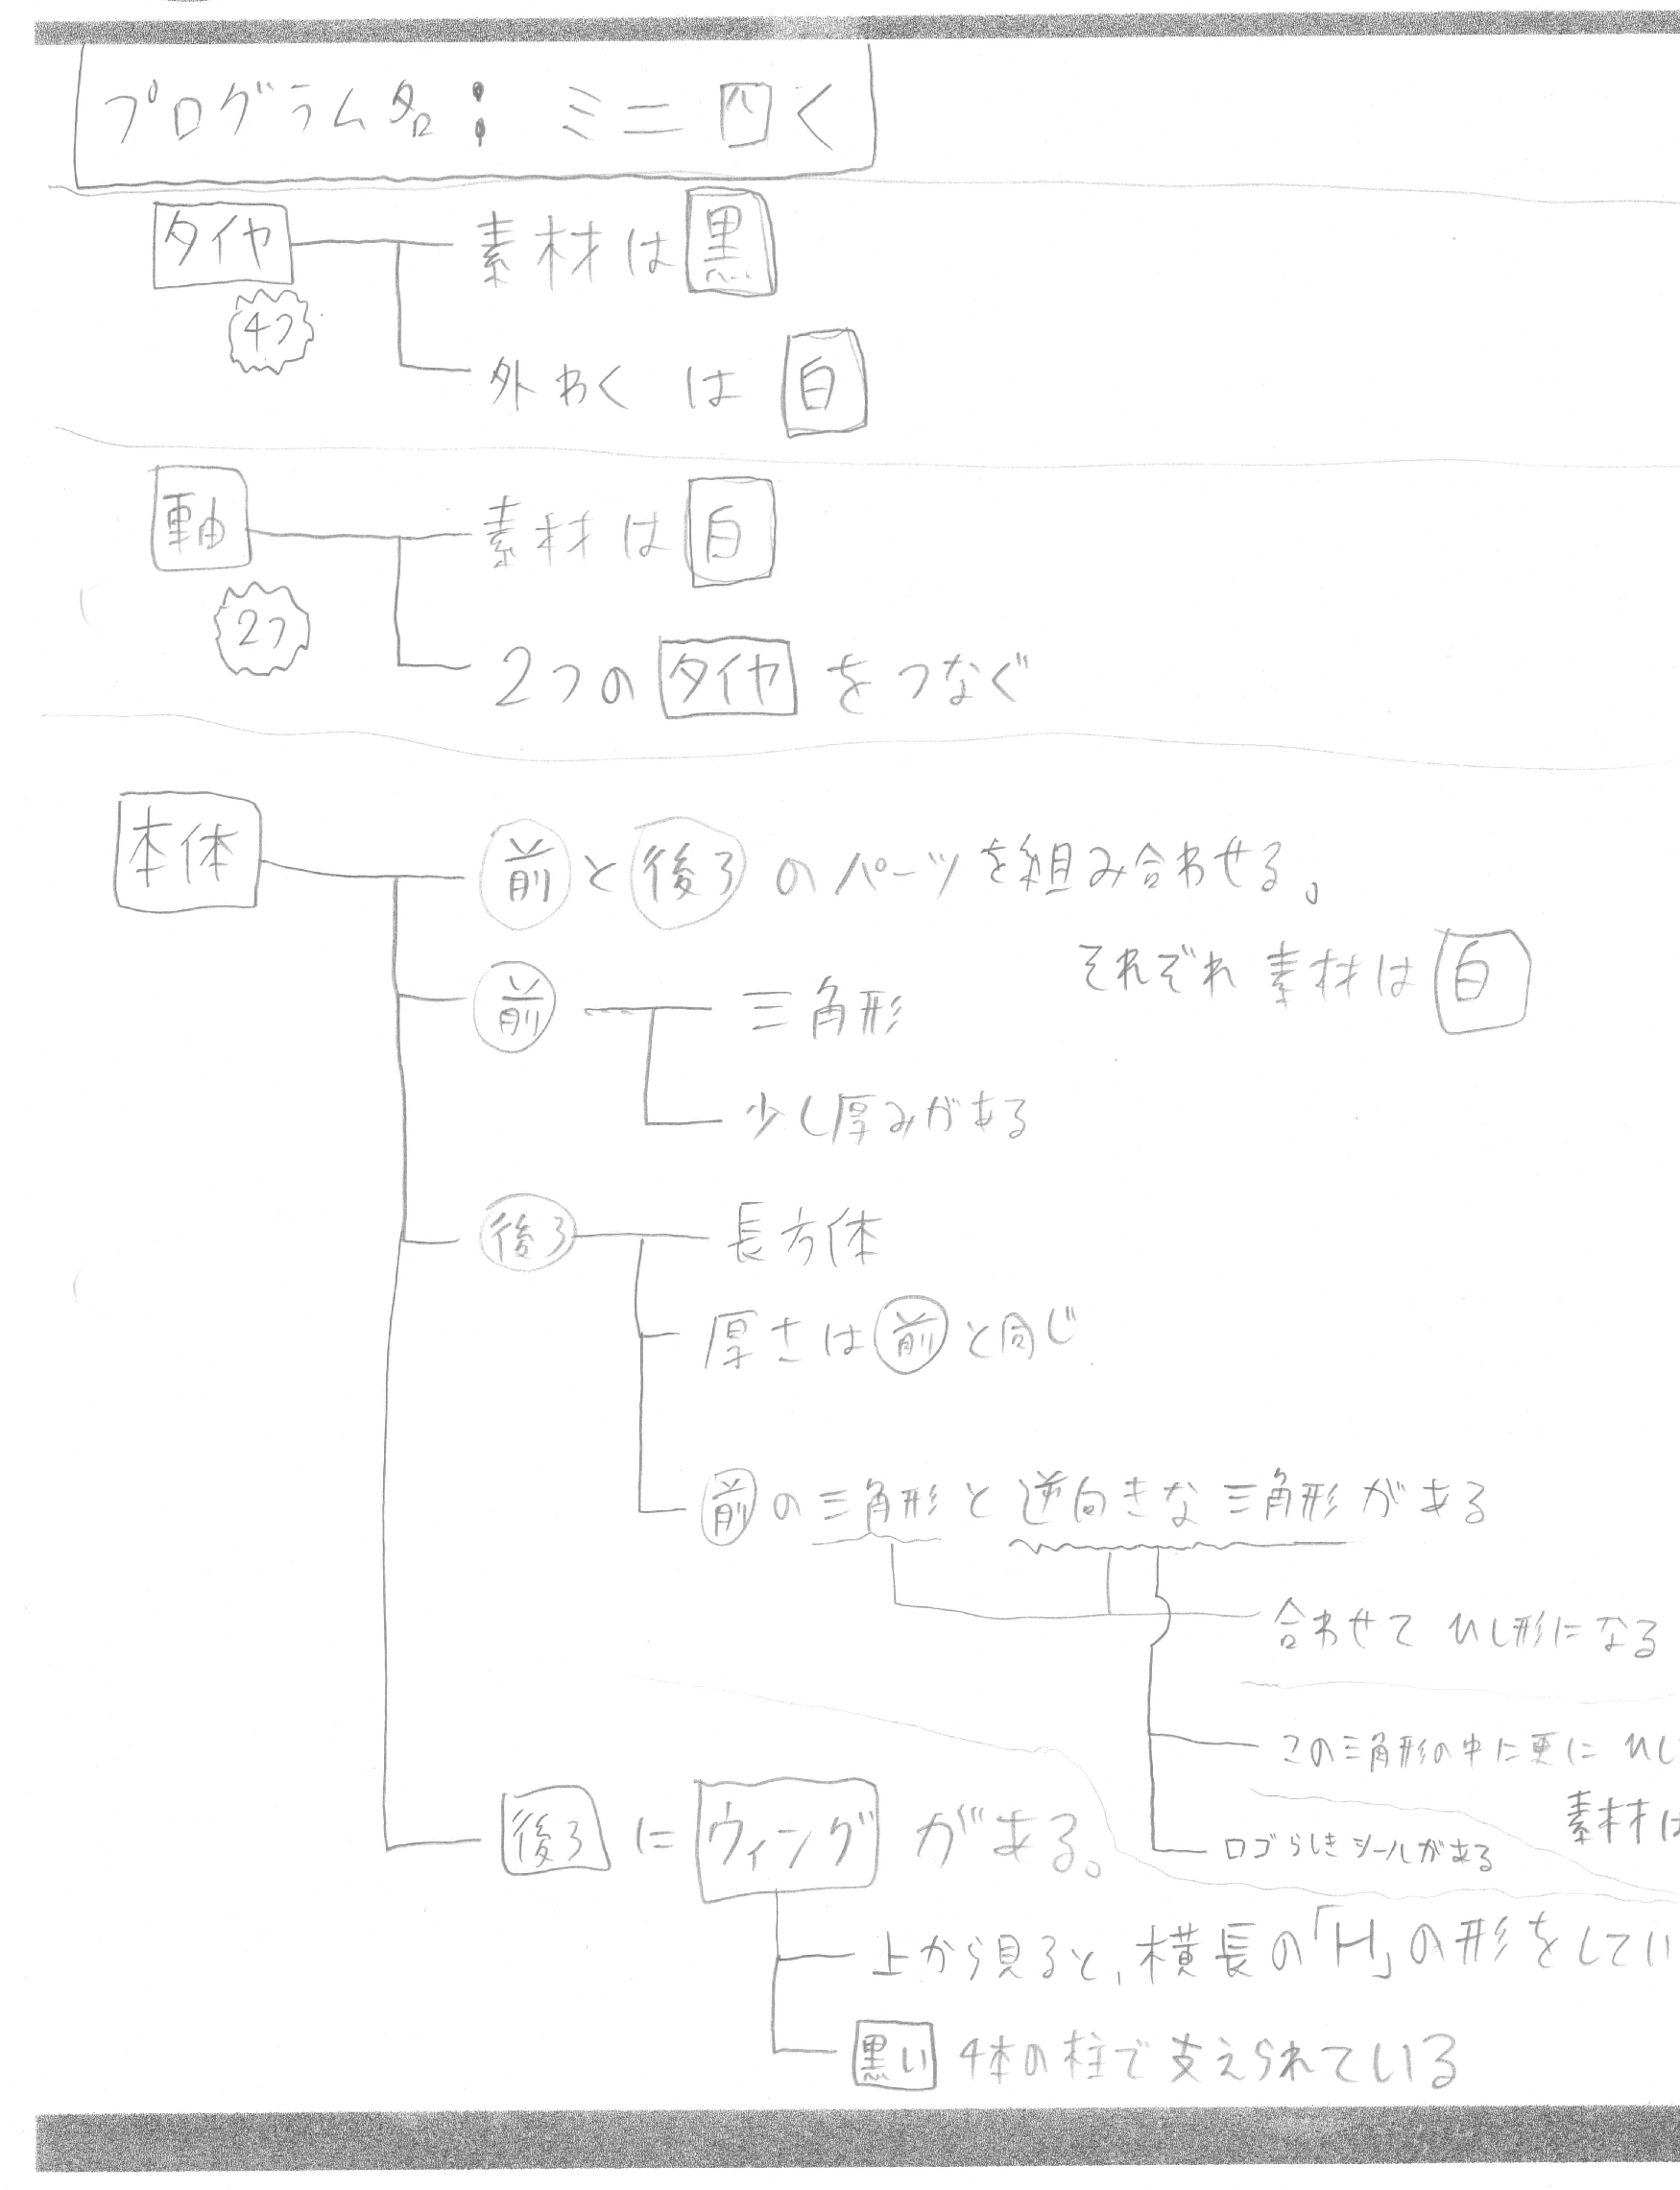 プログラム名： ミニ四く
タイヤ 素材は黒
4つ
外わくは白
軸 素材は白
2つ
2つのタイヤをつなぐ
本体 前と後ろのパーツを組み合わせる。
それぞれ素材は白
前 三角形
少し厚みがある
後ろ 長方体
厚さは前と同じ
前の三角形と逆向きな三角形がある
合わせてひし形になる
この三角形の中に更にひし
素材は
ロゴらしきシールがある
後ろにウィングがある。
上から見ると、横長の「H」の形をしてい
黒い4本の柱で支えられている